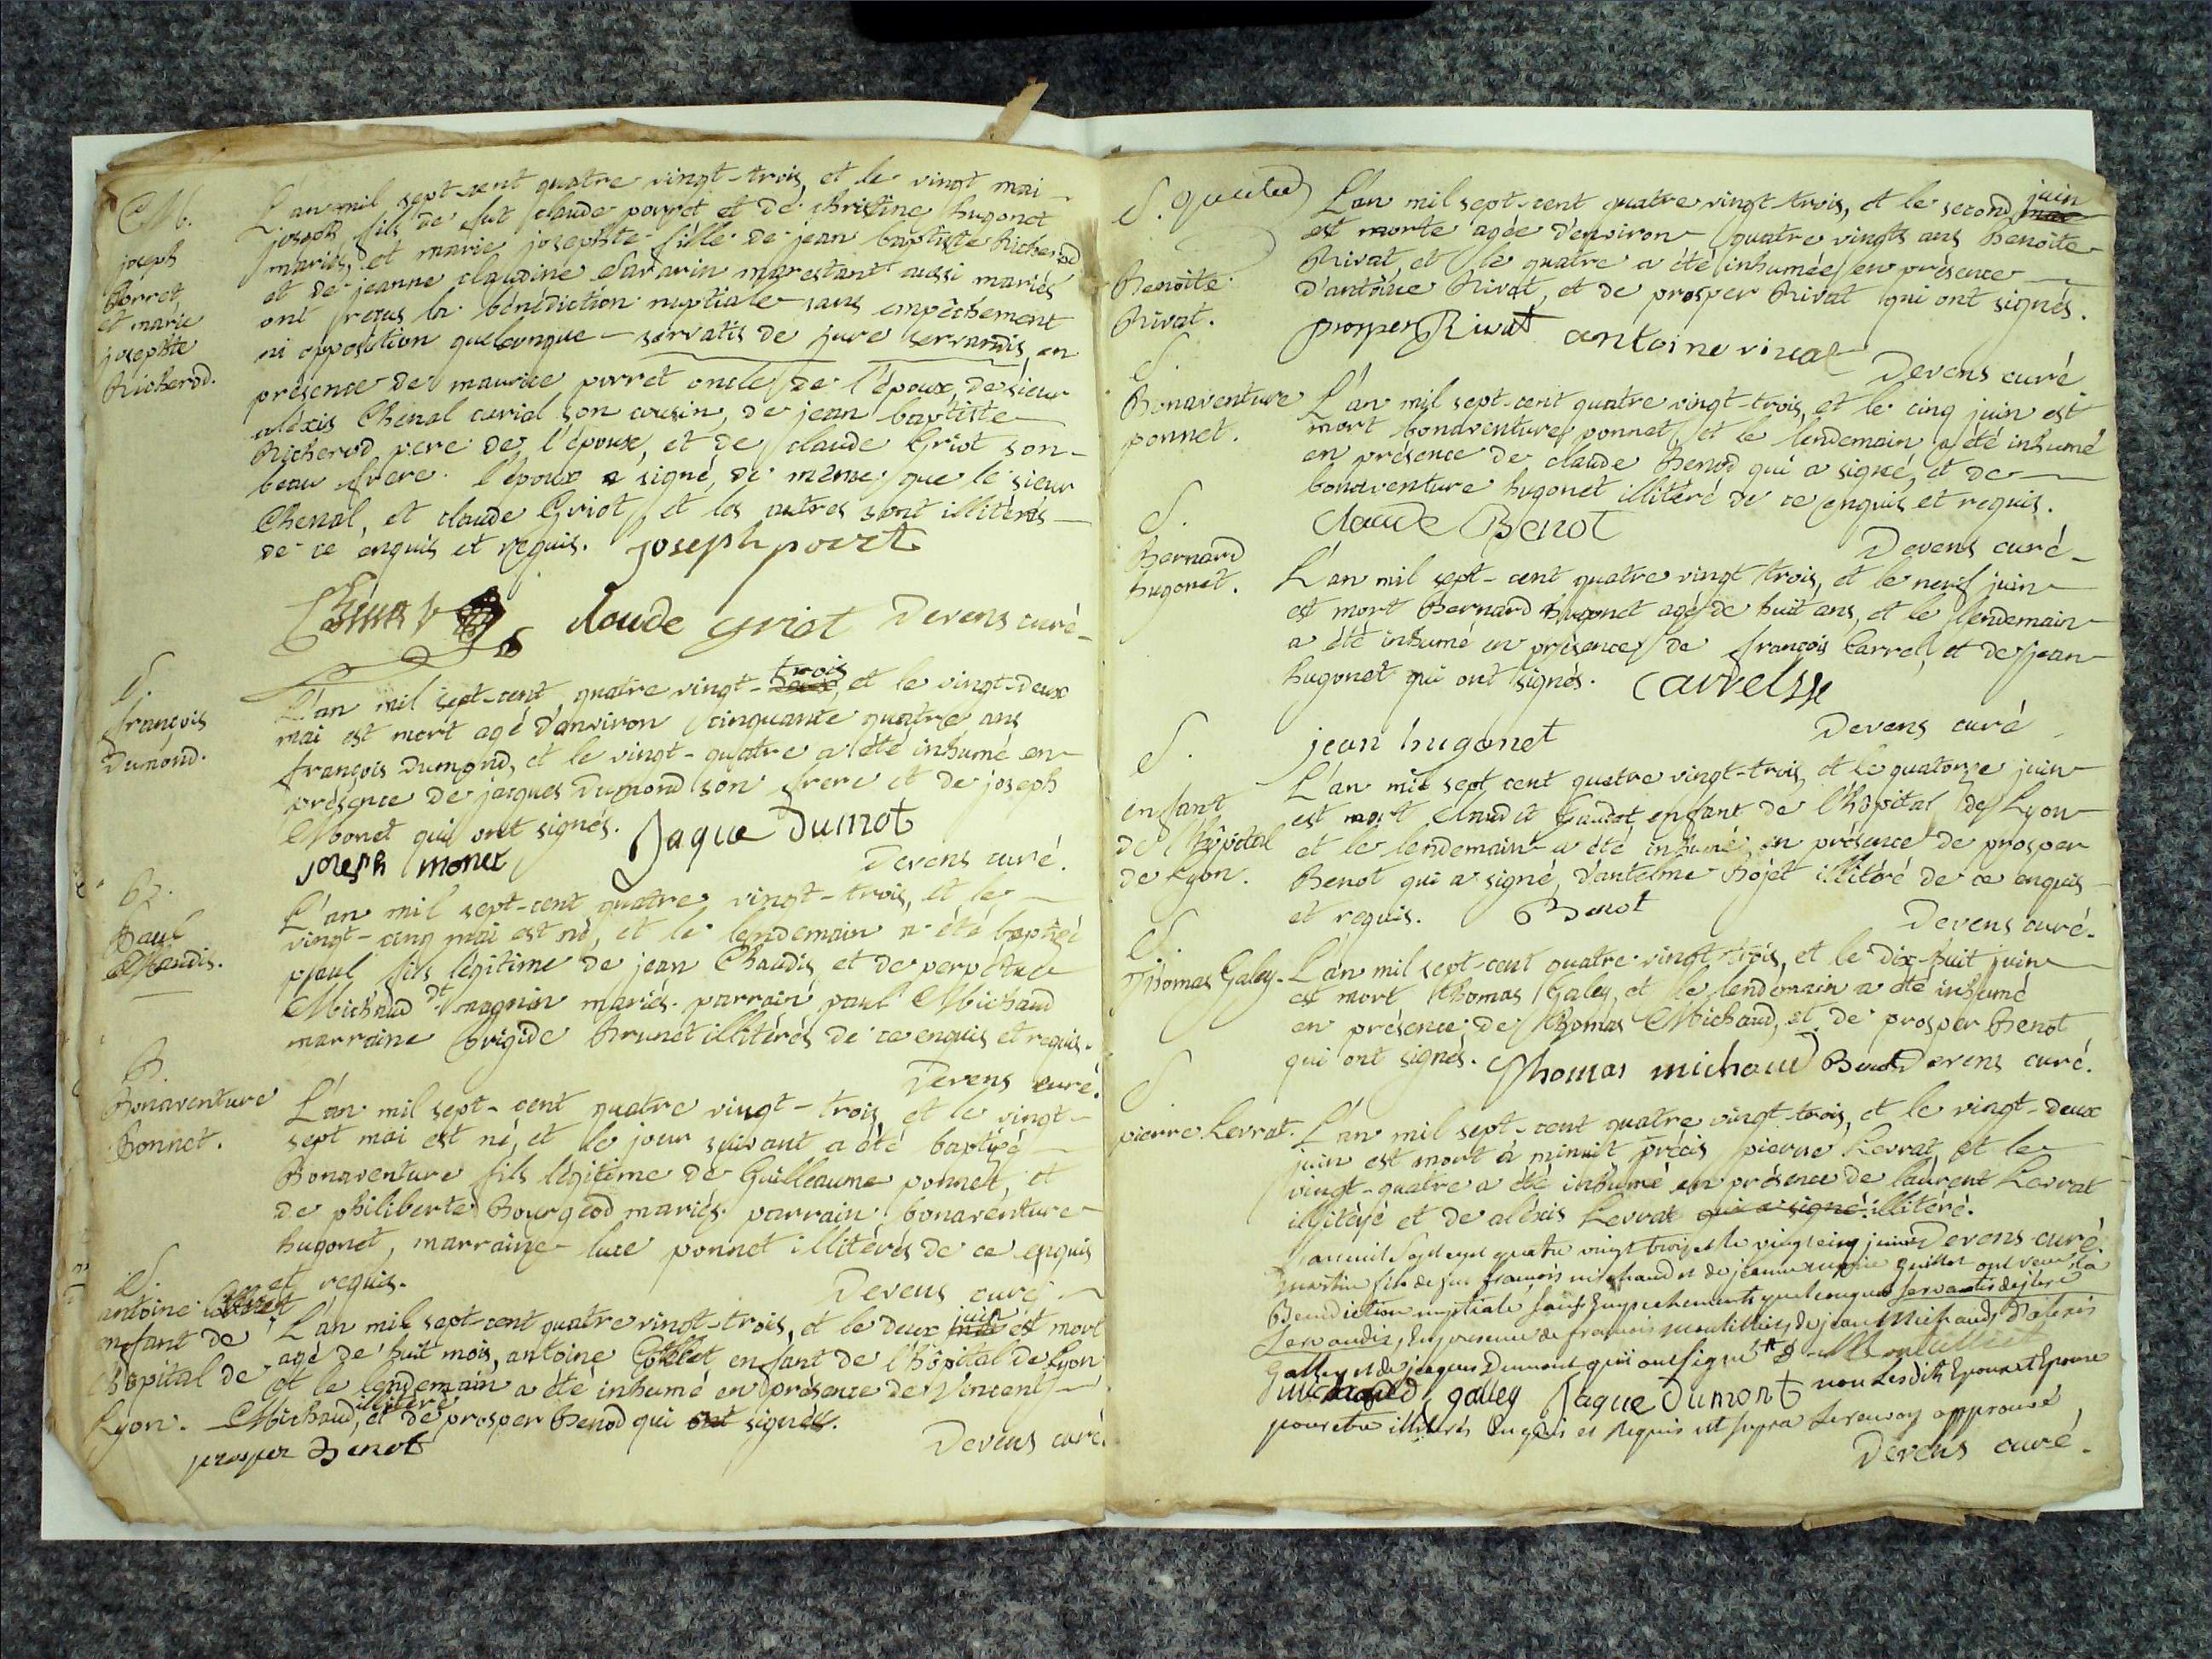 M.
joseph
Porret
et marie
josephte
Richerod.
L'an mil sept-cent quatre vingt-trois, et le vingt mai
joseph fils de fut claude porret et de christine hugonet
mariés, et marie josephte fille de jean baptiste Richerod
et de jeanne claudine Savarin marestant aussi mariés
ont reçus la bénédiction nuptiale sans empêchement
ni opposition quelconque servatis de jure servandis, en
présence de maurice porret oncle de l'époux, de sieur
aléxis Chenal curial son cousin, de jean baptiste
Richerod pere de l'épouse, et de claude Griot son
beau frere. l'époux a signé, de même que le sieur
Chenal, et claude Griot, et les autres sont illitérés
de ce enquis et requis. joseph porret
claude griot Devens curé
S.
françois
Dumond.
L'an mil sept-cent quatre vingt-deux trois, et le vingt-deux
mai est mort agé d'environ cinquante quatre ans
françois Dumond, et le vingt-quatre a été inhumé en
présence de jacques Dumond son frere et de joseph
Monet qui ont signés. Jaque Dumot
joseph monet Devens curé.
B.
Paul
Chaudis.
L'an mil sept-cent quatre vingt-trois, et le
vingt-cinq mai est né, et le lendemain a été baptisé
paul fils légitime de jean Chaudis, et de perpetue
Michaud dt magnin mariés. parrain paul Michaud
marraine brigide brunet illitérés de ce enquis et requis.
Devens curé.
B.
Bonaventure
Ponnet.
L'an mil sept-cent quatre vingt-trois, et le vingt
sept mai est né, et le jour suivant a été baptisé
Bonaventure fils légitime de Guilleaume ponnet, et
de philiberte Bourgeod mariés. parrain bonaventure
hugonet, marraine luce ponnet illitérés de ce enquis
et requis. Devens curé
S.
antoine
enfant de
l'hôpital de
Lyon.
L'an mil sept-cent quatre vingt-trois, et le deux mai juin est mort
agé de huit mois, antoine Collet, enfant de l'hôpital de Lyon
et le lendemain a été inhumé en présence de vincent
Michaud, illitéré et de prosper Benod qui signé.
prosper Benot Devens curé.
S.
Benoite
Rivat.
L'an mil sept-cent quatre vingt-trois, et le second mai juin
est morte agée d'environ quatre vingts ans Benoite
Rivat, et le quatre a été inhumée en présence
d'antoine Rivat, et de prosper Rivat qui ont signés.
prosper Rivat antoine rivat
Devens curé
S.
Bonaventure
ponnet.
L'an mil sept-cent quatre vingt-trois, et le cinq juin est
mort bonaventure ponnet, et le lendemain a été inhumé
en présence de claude Benod qui a signé, et de
bonaventure hugonet illitéré de ce enquis et requis.
Claude Benot
Devens curé
S.
Bernard
hugonet.
L'an mil sept-cent quatre vingt trois, et le neuf juin
est mort Bernard hugonet agé de huit ans, et le lendemain
a été inhumé en présence de françois Carrel, et de jean
hugonet qui ont signés. Carrel
jean hugonet Devens curé
S.
enfant
de l'hôpital
de Lyon.
L'an mil sept cent quatre vingt-trois, et le quatorze juin
est mort enfant de l'hôpital de Lyon
et le lendemain a été inhumé en présence de prosper
Benot qui a signé, d'antelme Bojet illitéré de ce enquis
et requis. Benot Devens curé.
S.
Thomas Galey.
L'an mil sept-cent quatre vingt trois, et le dix-huit juin
est mort thomas Galey, et le lendemain a été inhumé
en présence de thomas Michaud, et de prosper Benot
qui ont signés. Thomas michaud Benot Devens curé.
S.
pierre Levrat.
L'an mil sept-cent quatre vingt-trois, et le vingt-deux
juin est mort à minuit précis pierre Levrat, et le
vingt-quatre a été inhumé en présence de laurent Levrat
illitéré et de aléxis Levrat qui a signé. illitéré.
Devens curé
L'an mil Sept cent quatre vingt trois et le vingt cinq juin
martin fils de feu francois michaud et de jeanne guillot ont recu la
Benediction nuptiale sans Empechements quelconques servatis de jure
servandis, En presence de francois moutillier, de jean Michaud, D'alexis
Galley, et de jacques Dumont qui ont signé
michaud galley Jaque Dumont non les dits Epoux et Epouse
pour etre illiterés Enquis et Requis ut supra Le renvoy approuvé
Devens curé.